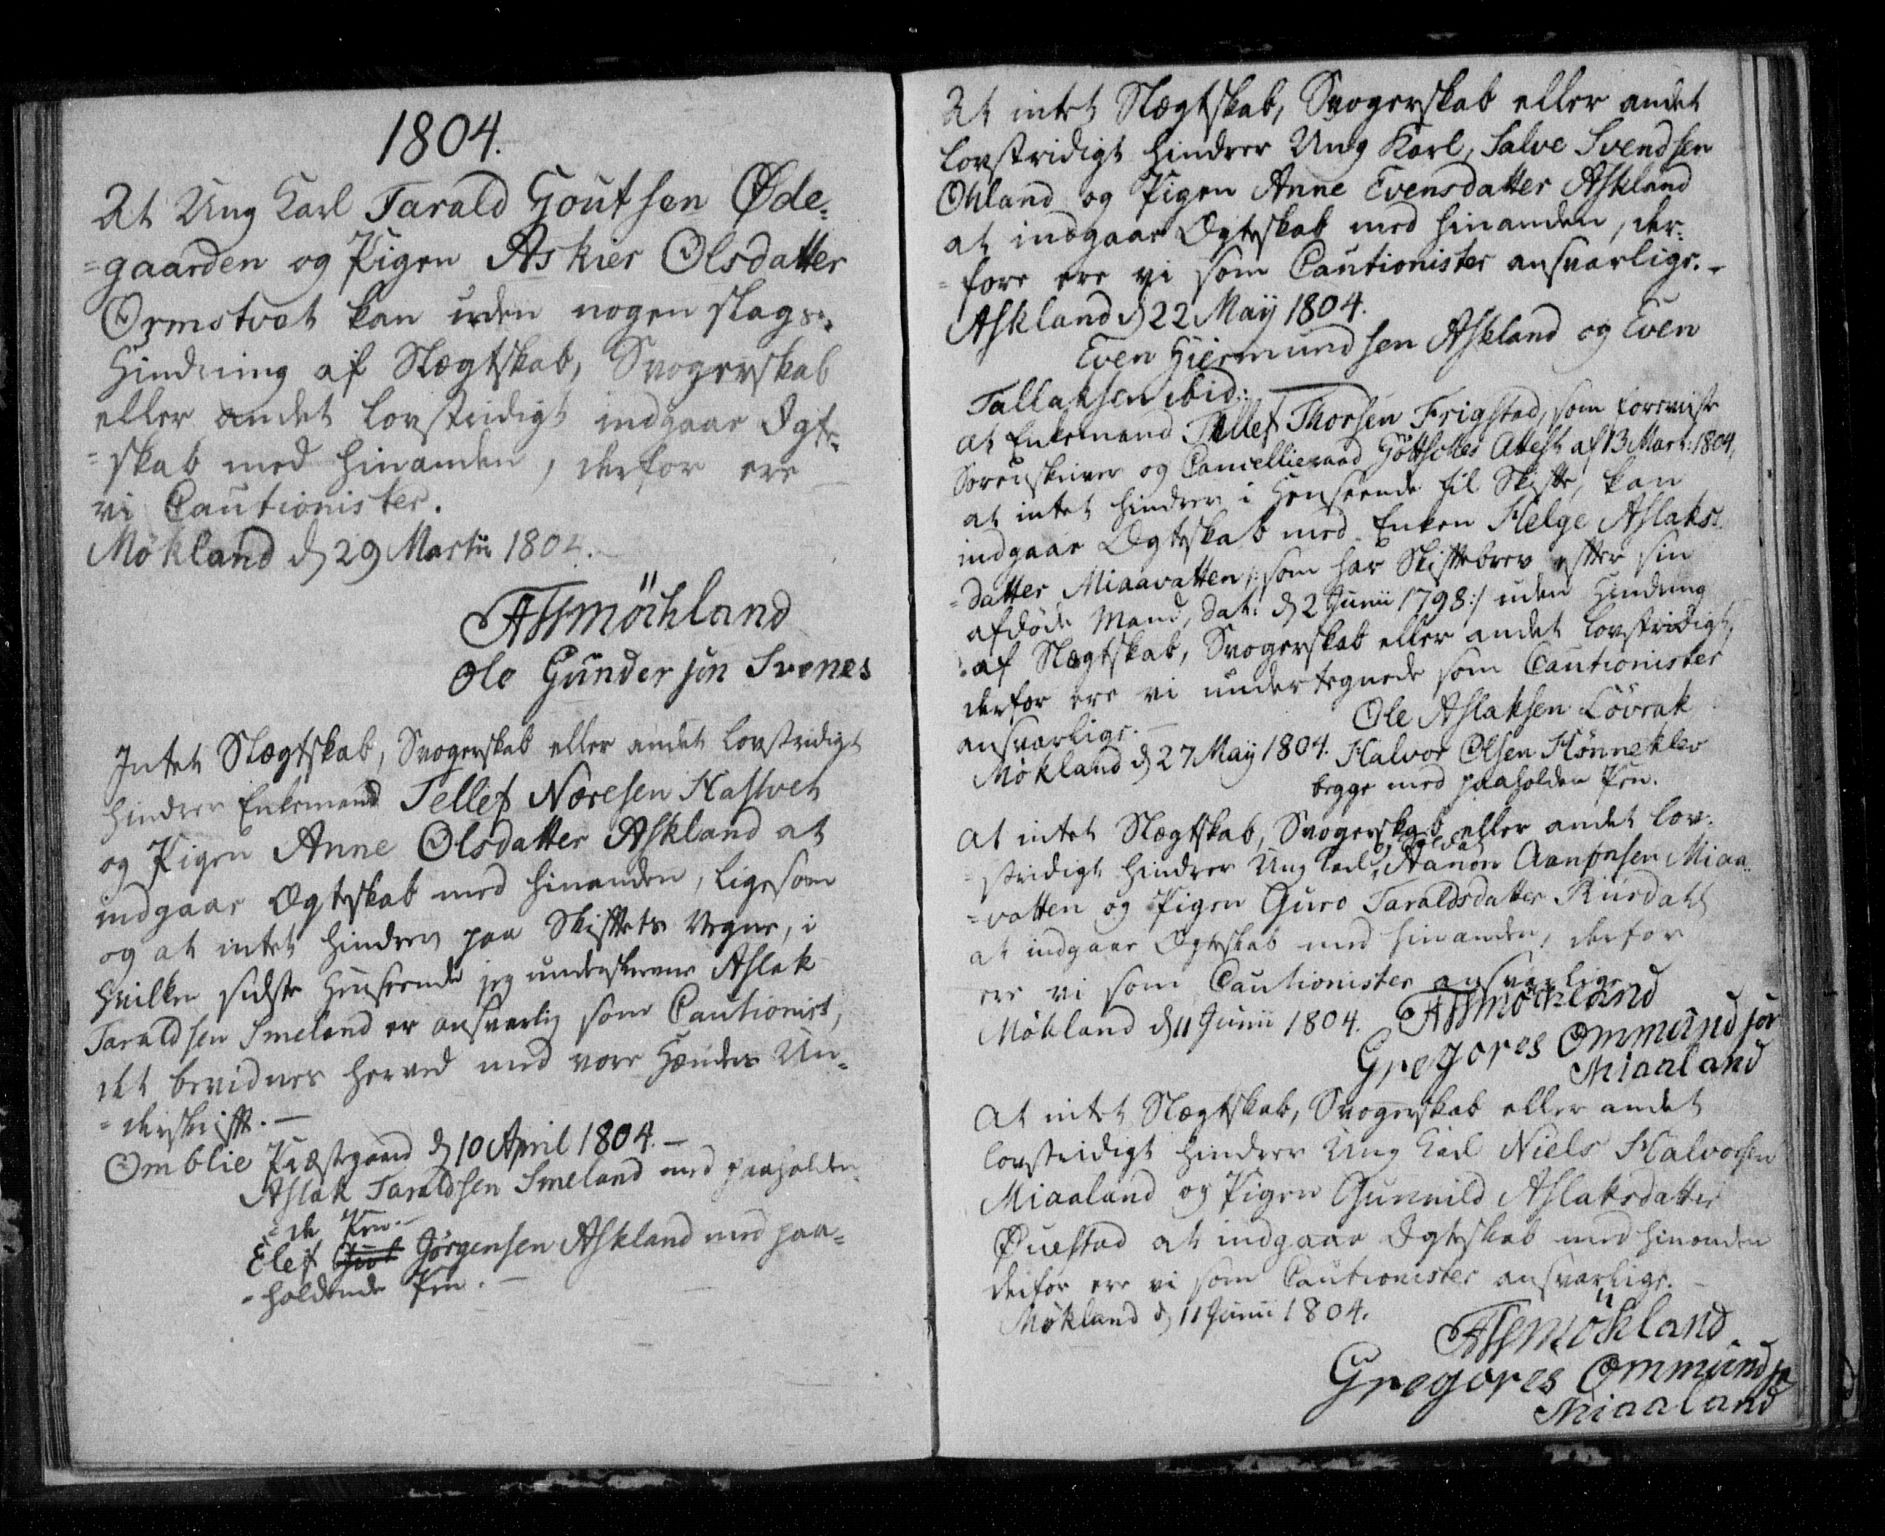 1804.
At Ung Karl Tarald Goutsen Øde-
-gaarden og Pigen Askier Olsdatter
Ormstvet kan uden nogen slags
Hindring af Slægtskab, Svogerskab
eller andet lovstridigt indgaae Ægte-
-skab med hinanden, derfor ere
vi Cautionister.
Møkland d 29 Martii 1804.
Møchland
Ole Gunder sen Svenes
Intet Slægtskab, Svogerskab eller andet lovstridigt
hindrer Enkemand Tellef Næresen Hastvet
og Pigen Anne Olsdatter Askland at
indgaae Ægteskab med hinanden, ligesom
og at intet hindrer paa Skiftets Vegne, i
hvilken sidste Henseende jeg underskrevne Aslak
Taraldsen Smeland er ansvarlig som Cautionist,
det bevidnes herved med vore Hænders Un-
-derskrift.
Omblie Præstegaard d 10 April 1804.
Aslak Taraldsen Smeland med paaholden-
-de Pen.
Elef Jørgensen Askland med paa-
-holdende Pen.
At intet Slægtskab, Svogerskab eller andet
lovstridigt hindrer Ung Karl, Salve Svendsen
Okland og Pigen Anne Evensdatter Askland
at indgaae Ægteskab med hinanden, der-
-fore ere vi som Cautionister ansvarlige.
Askland d 22 Maij 1804.
Even Giermundsen Askland og Even
Tallaksen ibid:
At Enkemand Tellef Thorsen Frigstad, som foreviiste
Sorenskriver og Cancellieraad Göttsches Attest af 13 Mart: 1804,
at intet hindrer i Henseende til Skifte, kan
indgaae Ægteskab med Enken Helge Aslaks-
-datter Miaavatten /: som har Skiftebrev efter sin
afdøde Mand, dat: d 2 Junii 1798 :/ uden Hindring
af Slægtskab, Svogerskab eller andet lovstridigt,
derfor ere vi undertegnede som Cautionister
ansvarlige.
Ole Aslaksen Løvrak
Møkland d 27 Maij 1804. Halvor Olsen Hønneklev
begge med paaholden Pen.
At intet Slægtskab, Svogerskab eller andet lov-
-stridigt hindrer Ung Karl, Aanon Aanonsen Miaa-
-vatten og Pigen Guro Taraldsdatter Riisdahl
at indgaae Ægteskab med hinanden, derfor
ere vi som Cautionister ansvarlige
Møkland d 11 Junii 1804. Møchland
Gregores Ommund sør
Miaaland
At intet Slægtskab, Svogerskab eller andet
lovstridigt hindrer Ung Karl Niels Halvorsen
Miaaland og Pigen Gunnild Aslaksdatter
Øuestad at indgaae Ægteskab med hinanden
derfor ere vi som Cautionister ansvarlige.
Møkland d 11 Junii 1804.
Møkland
Gregores Ommund
Miaaland